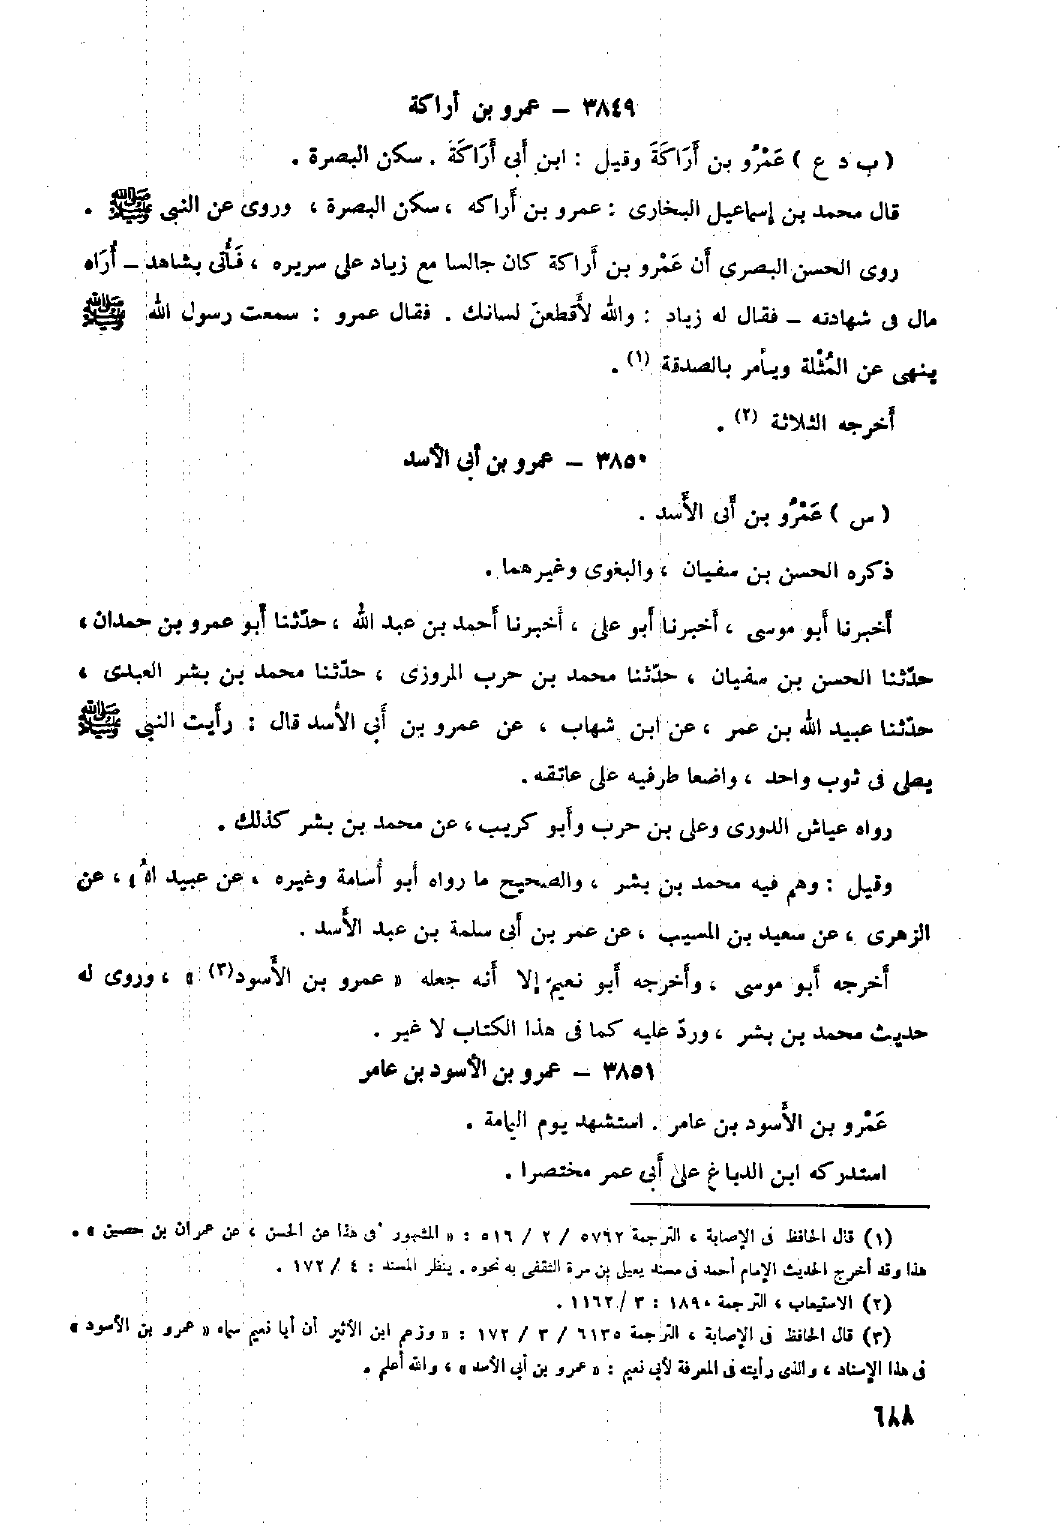 ٣٨٤٩ – عمرو بن أراكة
( ب د ع ) عَمْرُو بن أَرَاكَةَ وقيل : ابن أَبى أَرَاكَةَ . سكن البصرة .
قال محمد بن إسماعيل البخارى : عمرو بن أَراكه ، سكن البصرة ، وروى عن النبى ﷺ .
روى الحسن البصرى أَن عَمْرو بن أَراكة كان جالسا مع زياد على سريره ، فَأُتى بشاهد – أُرَاه
مال فى شهادته – فقال له زياد : والله لأَقطعنّ لسانك . فقال عمرو : سمعت رسول الله ﷺ
ينهى عن المُثْلة ويأمر بالصدقة (١) .
أَخرجه الثلاثة (٢) .
٣٨٥٠ – عمرو بن أبى الأسد
( س ) عَمْرُو بن أَبى الأَسد .
ذكره الحسن بن سفيان ، والبغوى وغيرهما .
أَخبرنا أَبو موسى ، أَخبرنا أَبو على ، أَخبرنا أَحمد بن عبد الله ، حدّثنا أَبو عمرو بن حمدان ،
حدّثنا الحسن بن سفيان ، حدّثنا محمد بن حرب المروزى ، حدّثنا محمد بن بشر العبدى ،
حدّثنا عبيد الله بن عمر ، عن ابن شهاب ، عن عمرو بن أَبى الأَسد قال : رأَيت النبى ﷺ
يصلى فى ثوب واحد ، واضعا طرفيه على عاتقه .
رواه عياش الدورى وعلى بن حرب وأَبو كريب ، عن محمد بن بشر كذلك .
وقيل : وهم فيه محمد بن بشر ، والصحيح ما رواه أَبو أُسامة وغيره ، عن عبيد الله ، عن
الزهرى ، عن سعيد بن المسيب ، عن عمر بن أَبى سلمة بن عبد الأَسد .
أَخرجه أَبو موسى ، وأَخرجه أَبو نعيم إلا أَنه جعله « عمرو بن الأَسود(٣) » ، وروى له
حديث محمد بن بشر ، وردّ عليه كما فى هذا الكتاب لا غير .
٣٨٥١ – عمرو بن الأسود بن عامر
عَمْرو بن الأَسود بن عامر . استشهد يوم اليمامة .
استدركه ابن الدباغ على أَبى عمر مختصرا .
(١) قال الحافظ فى الإصابة ، الترجمة ٥٧٦٢ / ٢ / ٥١٦ : « المشهور فى هذا عن الحسن ، عن عمران بن حصين » .
هذا وقد أخرج الحديث الإمام أحمد فى مسند يعلى بن مرة الثقفى به نحوه . ينظر المسند : ٤ / ١٧٢ .
(٢) الاستيعاب ، الترجمة ١٨٩٠ : ٣ / ١١٦٢ .
(٣) قال الحافظ فى الإصابة ، الترجمة ٦١٣٥ / ٣ / ١٧٢ : « وزعم ابن الأثير أن أبا نعيم سماه « عمرو بن الأسود »
فى هذا الإسناد ، والذى رأيته فى المعرفة لأبى نعيم : « عمرو بن أبى الأسد » ، والله أعلم .
٦٨٨